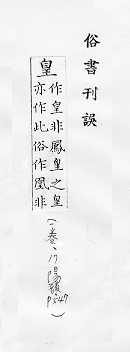 俗書刊誤
皇
作皇非鳳皇之皇
亦作此俗作凰非
(一卷、17陽韻 P547)